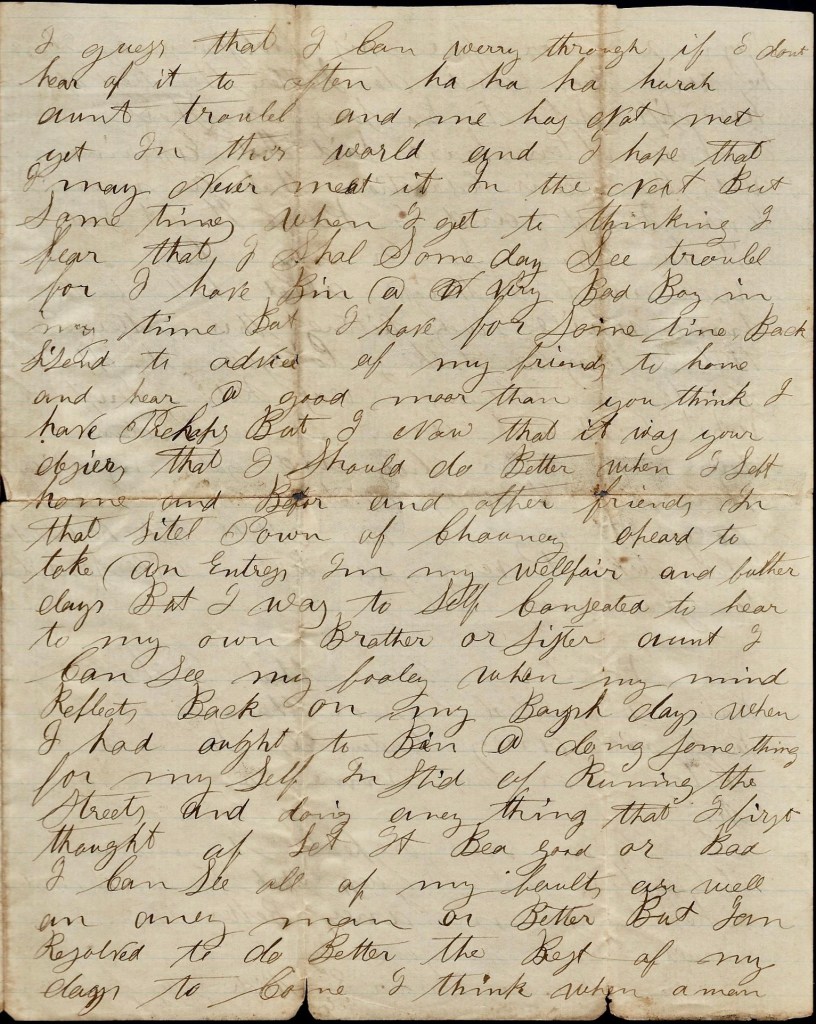 I guess that I Can worry through if I dont
hear of it to often ha ha ha hurah
aunt troubl and me has Not met
yet In this world and I hope that
I may Never meat it In the Next But
Some times when I get to thinking I
fear that I Shal Some day See troubl
for I have Bin @ Very Bad Boy in
my time But I have for Some time Back
to advice of my friends to home
and hear @ good moor than you think I
have Prehaps But I Now that it was your
desiers that I Should do Better when I Left
home and Befor and other friends In
that Litel Town of Chauncy apeard to
take @n Entress Im my wellfair and futher
days But I was to Self Conseated to hear
to my own Brother or Sister aunt I
Can See my fooley when my mind
Reflects Back on my Boyish days when
I had aught to Bin @ doing Some thing
for my Self In Stid of Runing the
Streets and doing aney thing that I first
thought of Let It Bea good or Bad
I Can See all of my faults as well
an aney man or Better But I am
Resolved to do Better the Rest of my
days to Come I think when a man